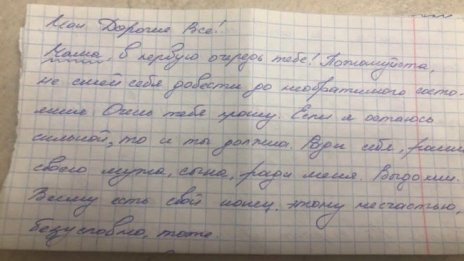 Мои Дорогие Все!
Мама, в первую очередь тебе! Пожалуйста,
не смей себя довести до необратимого состо-
яния. Очень тебя прошу. Если я остаюсь
сильной, то и ты должна. Ради себя, ради
своего мужа, сына, ради меня. Выдохни.
Всему есть свой конец. Этому несчастью,
безусловно, тоже.